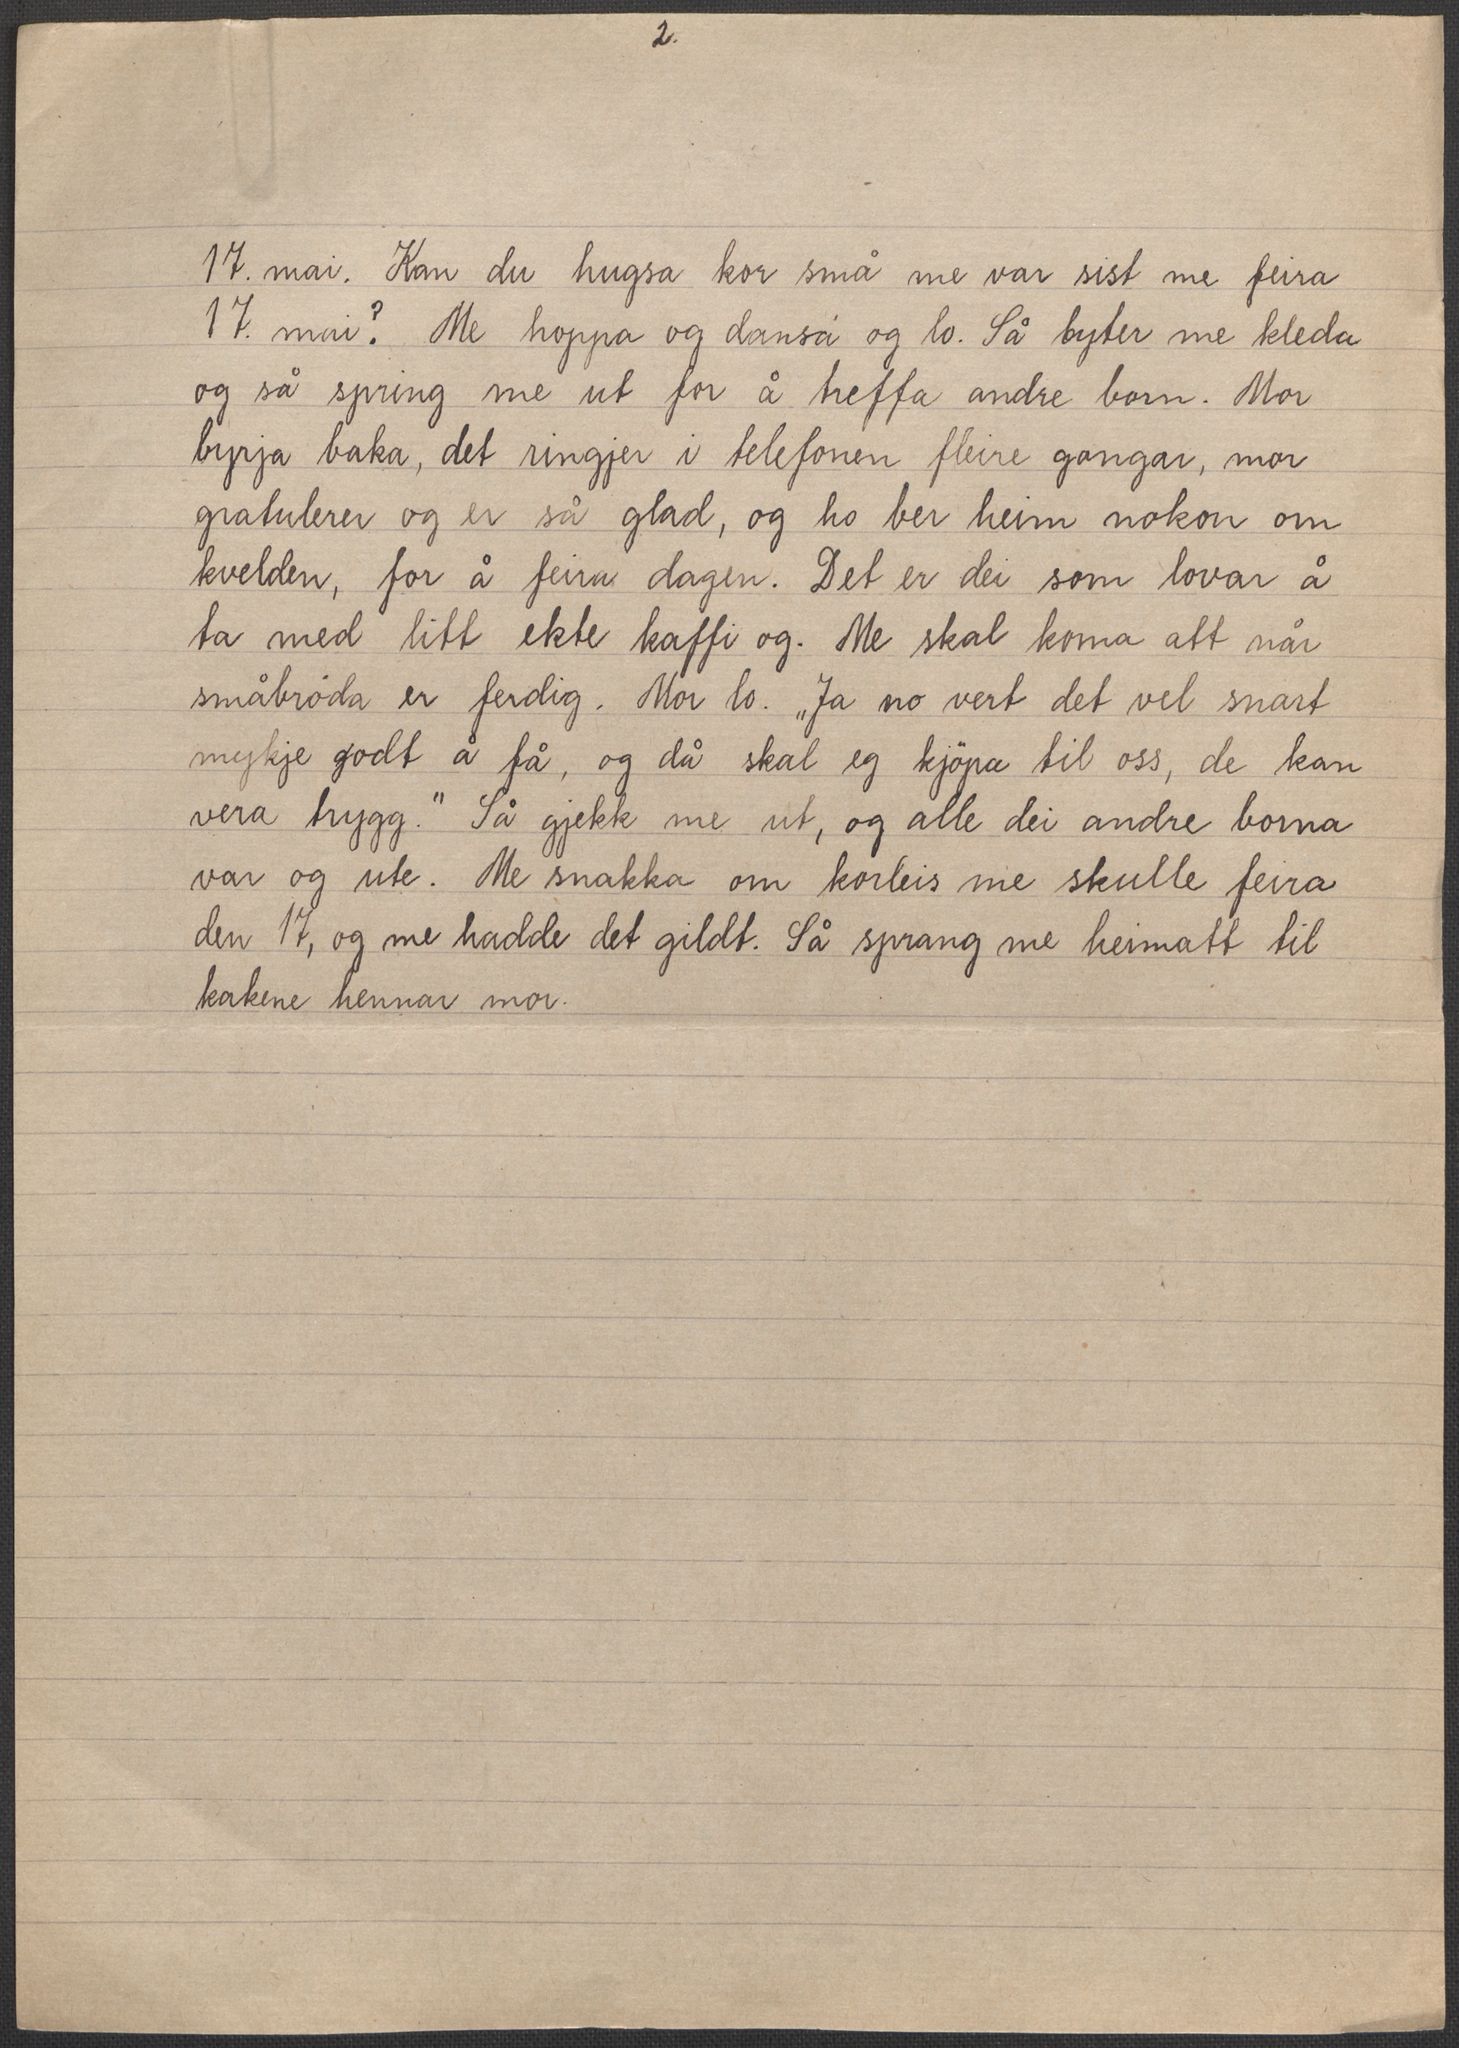 2.
17. mai. Kan du hugsa kor små me var sist me feira
17. mai? Me hoppa og dansa og lo. Så byter me kleda
og så spring me ut for å treffa andre born. Mor
byrja baka, det ringjer i telefonen fleire gongar, mor
gratulerer og er så glad, og ho ber heim nokon om
kvelden, for å feira dagen. Det er dei som lovar å
ta med litt ekte kaffi og. Me skal koma att når
småbröda er ferdig. Mor lo. „Ja no vert det vel snart
mykje godt å få, og då skal eg kjöpa til oss, de kan
vera trygg." Så gjekk me ut, og alle dei andre borna
var og ute. Me snakka om korleis me skulle feira
den 17, og me hadde det gildt. Så sprang me heimatt til
kakene hennar mor.